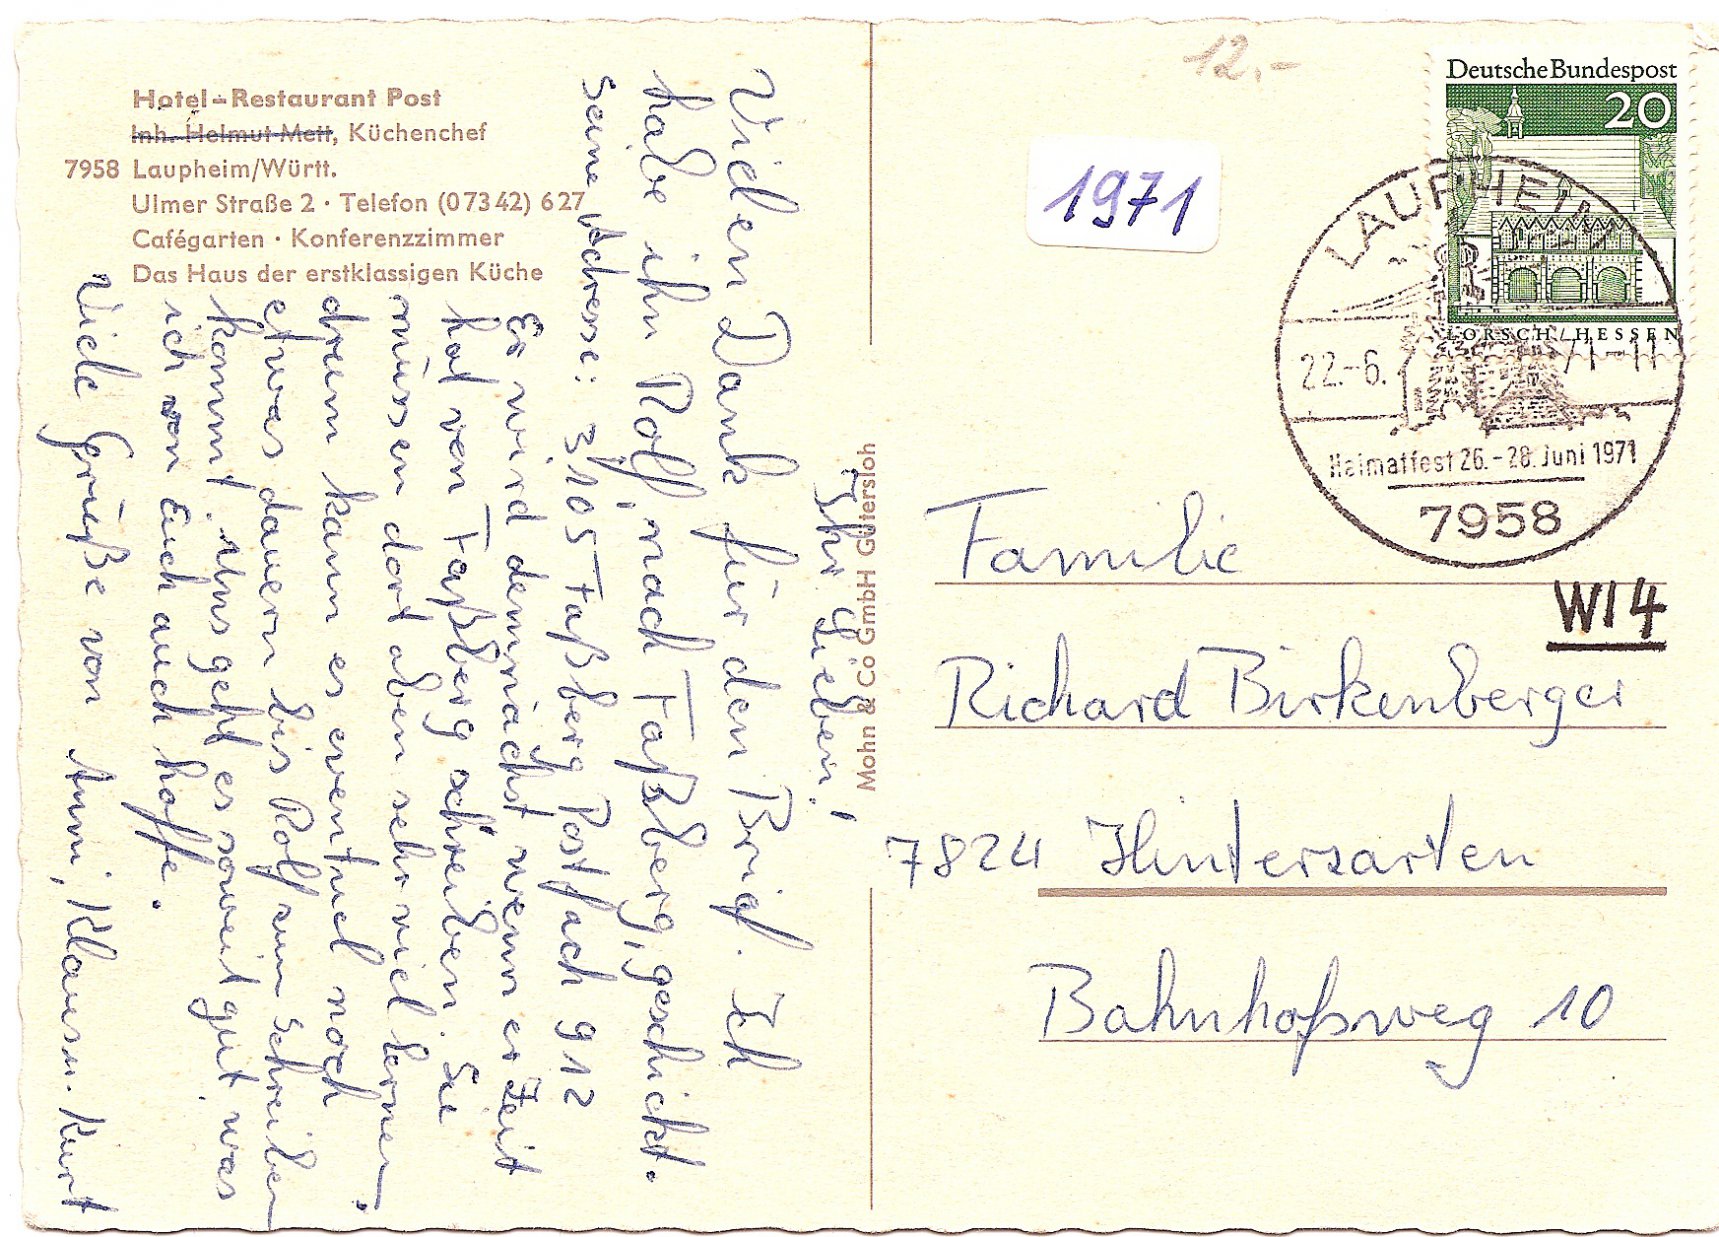 Hotel-Restaurant Post
Inh. Helmut Mett, Küchenchef
7958 Laupheim/Württ.
Ulmer Straße 2 · Telefon (07342) 627
Cafégarten · Konferenzzimmer
Das Haus der erstklassigen Küche
Ihr Lieben!
Vielen Dank für den Brief. Ich
habe ihn Rolf, nach Faßberg, geschickt.
Seine Adresse: 3105 Faßberg Postfach 912
Er wird demnächst wenn er Zeit
hat von Faßberg schreiben. Sie
müssen dort oben sehr viel lernen,
drum kann es eventuel noch
etwas dauern bis Rolf zum schreiben
kommt. Uns geht es soweit gut, was
ich von Euch auch hoffe.
Viele Grüße von Anni, Klaus u. Kurt
Mohn & Co GmbH Gütersloh
12.-
1971
Deutsche Bundespost
20
LORSCH/HESSEN
LAUPHEIM
22.-6.71-11
Heimatfest 26.-28. Juni 1971
7958
W14
Familie
Richard Birkenberger
7824 Hinterzarten
Bahnhofsweg 10